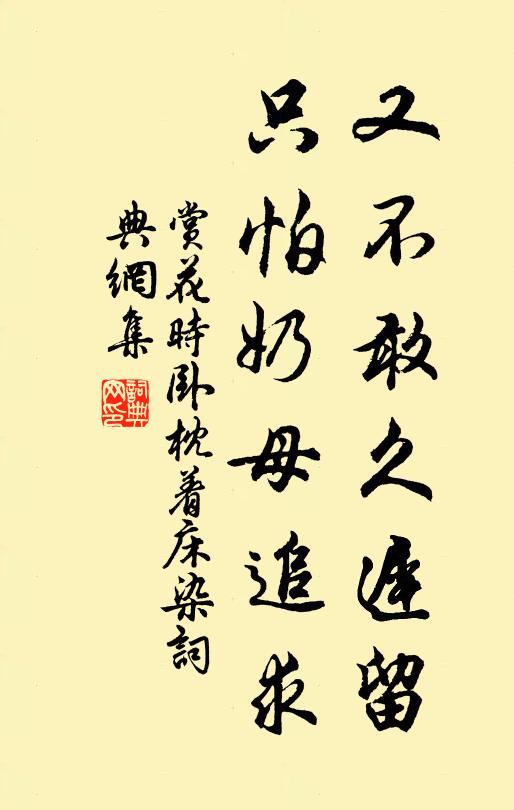 又不敢久遲留
只怕奶母追求
賞花時卧枕着床染詞
典網集
詞典
网印